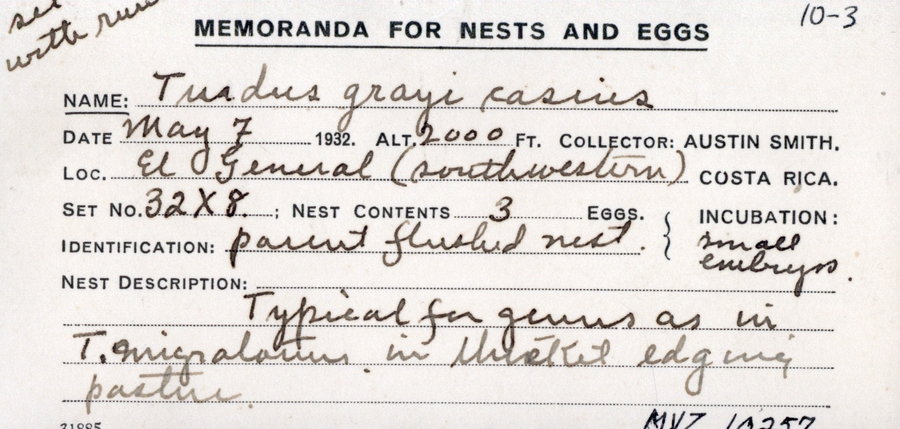 set
with runt
10-3
MEMORANDA FOR NESTS AND EGGS
NAME: Turdus grayi casius
DATE May 7 1932. ALT. 2000 FT. COLLECTOR: AUSTIN SMITH.
LOC. El General (southwestern) COSTA RICA.
SET NO. 32X8. ; NEST CONTENTS 3 EGGS. { INCUBATION:
IDENTIFICATION: parent flushed nest. small
embryos.
NEST DESCRIPTION:
Typical for genus as in
T. migratorius in thicket edging
pasture.
31885 MVZ